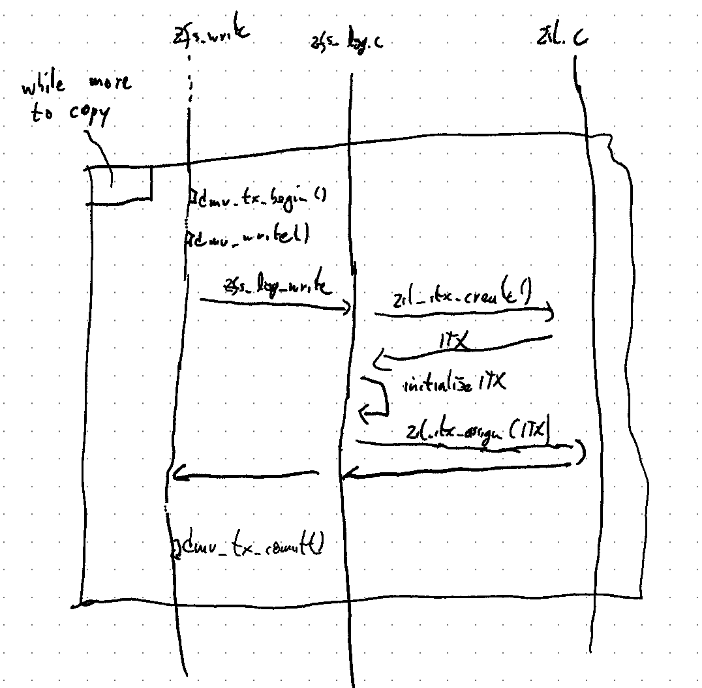 zfs_write
zfs_log.c
zil.c
while more
to copy
dmu_tx_begin()
dmu_write()
zfs_log_write
zil_itx_create()
ITX
initialise ITX
zil_itx_assign(ITX)
dmu_tx_commit()